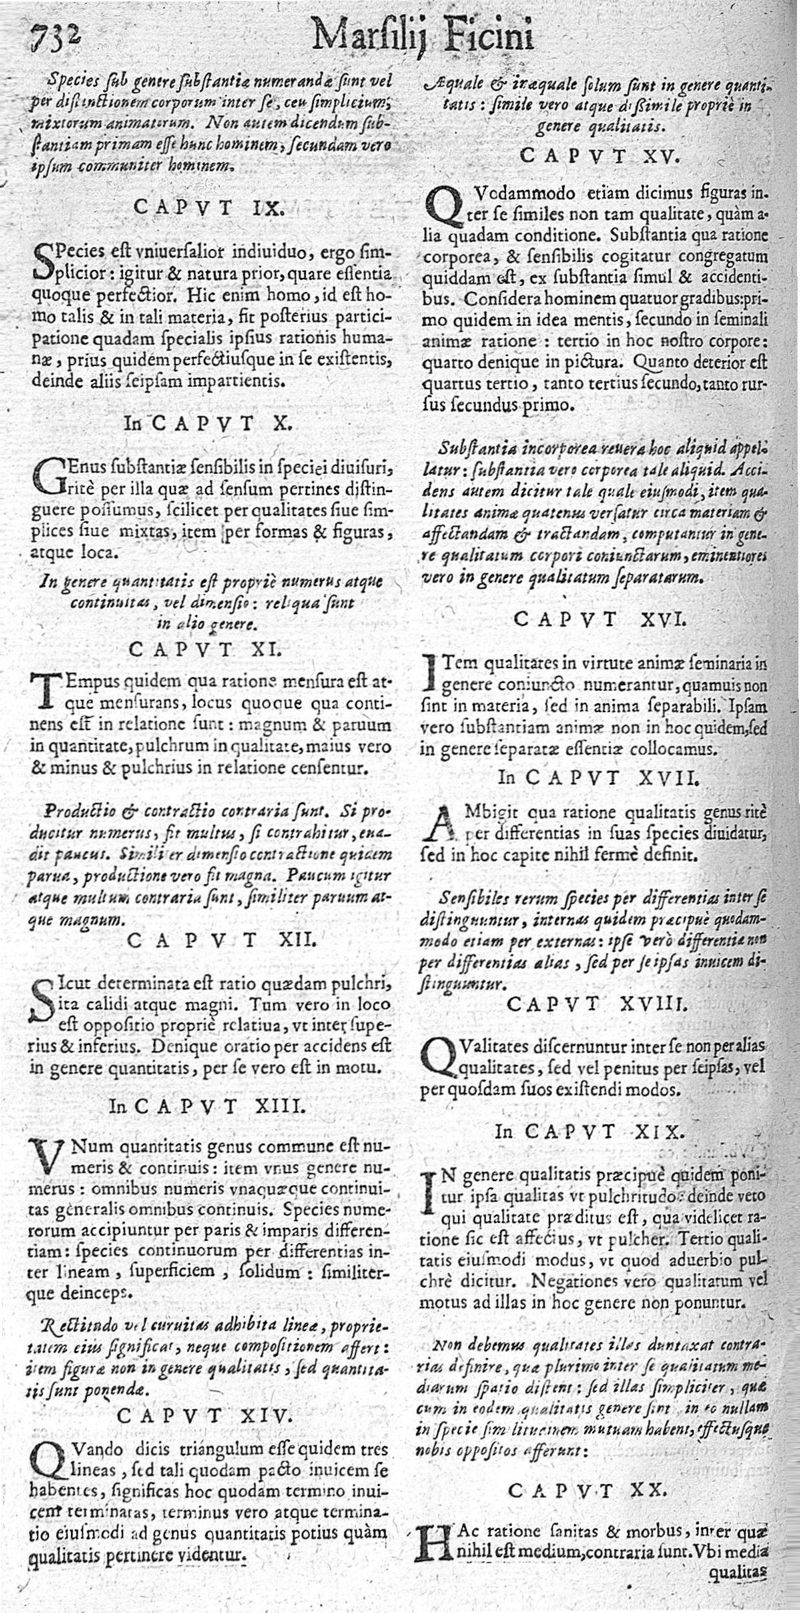 732
Marsilij Ficini
Species sub genere substantiæ numerandæ sunt vel
per distinctionem corporum inter se, ceu simplicium,
mixtorum animatorum. Non autem dicendum sub-
stantiam primam esse hunc hominem, secundam vero
ipsum communiter hominem.
CAPVT IX.
SPecies est vniuersalior indiuiduo, ergo sim-
plicior: igitur & natura prior, quare essentia
quoque perfectior. Hic enim homo, id est ho-
mo talis & in tali materia, fit posterius partici-
patione quadam specialis ipsius rationis huma-
næ, prius quidem perfectiusque in se existentis,
deinde aliis seipsam impartientis.
In CAPVT X.
GEnus substantiæ sensibilis in speciei diuisuri,
ritè per illa quæ ad sensum pertines distin-
guere possumus, scilicet per qualitates siue sim-
plices siue mixtas, item per formas & figuras,
atque loca.
In genere quantitatis est propriè numerus atque
continuitas, vel dimensio: reliqua sunt
in alio genere.
CAPVT XI.
TEmpus quidem qua ratione mensura est at-
que mensurans, locus quoque qua conti-
nens est in relatione sunt: magnum & paruum
in quantitate, pulchrum in qualitate, maius vero
& minus & pulchrius in relatione censentur.
Productio & contractio contraria sunt. Si pro-
ducitur numerus, fit multus, si contrahitur, eua-
dit paucus. Similiter dimensio contractione quidem
parua, productione vero fit magna. Paucum igitur
atque multum contraria sunt, similiter paruum at-
que magnum.
CAPVT XII.
SIcut determinata est ratio quædam pulchri,
ita calidi atque magni. Tum vero in loco
est oppositio propriè relatiua, vt inter supe-
rius & inferius. Denique oratio per accidens est
in genere quantitatis, per se vero est in motu.
In CAPVT XIII.
VNum quantitatis genus commune est nu-
meris & continuis: item vnus genere nu-
merus: omnibus numeris vnaquæque continui-
tas generalis omnibus continuis. Species nume-
rorum accipiuntur per paris & imparis differen-
tiam: species continuorum per differentias in-
ter lineam, superficiem, solidum: similiter-
que deinceps.
Rectitudo vel curuitas adhibita lineæ, proprie-
tatem eius significat, neque compositionem affert:
item figuræ non in genere qualitatis, sed quantita-
tis sunt ponendæ.
CAPVT XIV.
QVando dicis triángulum esse quidem tres
lineas, sed tali quodam pacto inuicem se
habentes, significas hoc quodam termino inui-
cem terminatas, terminus vero atque termina-
tio eiusmodi ad genus quantitatis potius quàm
qualitatis pertinere videntur.
Æquale & inæquale solum sunt in genere quanti-
tatis: simile vero atque dissimile propriè in
genere qualitatis.
CAPVT XV.
QVodammodo etiam dicimus figuras in-
ter se similes non tam qualitate, quàm a-
lia quadam conditione. Substantia qua ratione
corporea, & sensibilis cogitatur congregatum
quiddam est, ex substantia simul & accidenti-
bus. Considera hominem quatuor gradibus: pri-
mo quidem in idea mentis, secundo in seminali
animæ ratione: tertio in hoc nostro corpore:
quarto denique in pictura. Quanto deterior est
quartus tertio, tanto tertius secundo, tanto rur-
sus secundus primo.
Substantia incorporea reuera hoc aliquid appel-
latur: substantia vero corporea tale aliquid. Acci-
dens autem dicitur tale quale eiusmodi, item qua-
litates animæ quatenus versatur circa materiam &
affectandam & tractandam, computantur in gene-
re qualitatum corpori coniunctarum, eminentiores
vero in genere qualitatum separatarum.
CAPVT XVI.
ITem qualitates in virtute animæ seminaria in
genere coniuncto numerantur, quamuis non
sint in materia, sed in anima separabili. Ipsam
vero substantiam animæ non in hoc quidem, sed
in genere separatæ essentiæ collocamus.
In CAPVT XVII.
AMbigit qua ratione qualitatis genus ritè
per differentias in suas species diuidatur,
sed in hoc capite nihil fermè definit.
Sensibiles rerum species per differentias inter se
distinguuntur, internas quidem præcipuè quodam-
modo etiam per externas: ipsæ verò differentiæ non
per differentias alias, sed per se ipsas inuicem di-
stinguuntur.
CAPVT XVIII.
QValitates discernuntur inter se non per alias
qualitates, sed vel penitus per seipsas, vel
per quosdam suos existendi modos.
In CAPVT XIX.
IN genere qualitatis præcipuè quidem poni-
tur ipsa qualitas vt pulchritudo: deinde vero
qui qualitate præditus est, qua videlicet ra-
tione sic est affectus, vt pulcher. Tertio quali-
tatis eiusmodi modus, vt quod aduerbio pul-
chrè dicitur. Negationes vero qualitatum vel
motus ad illas in hoc genere non ponuntur.
Non debemus qualitates illas duntaxat contra-
rias definire, quæ plurimo inter se qualitatum me-
diarum spatio distent: sed illas simpliciter, quæ
cum in eodem qualitatis genere sint, in eo nullam
in specie similitudinem mutuam habent, effectusque
nobis oppositos afferunt:
CAPVT XX.
HAc ratione sanitas & morbus, inter quæ
nihil est medium, contraria sunt. Vbi media
qualitas